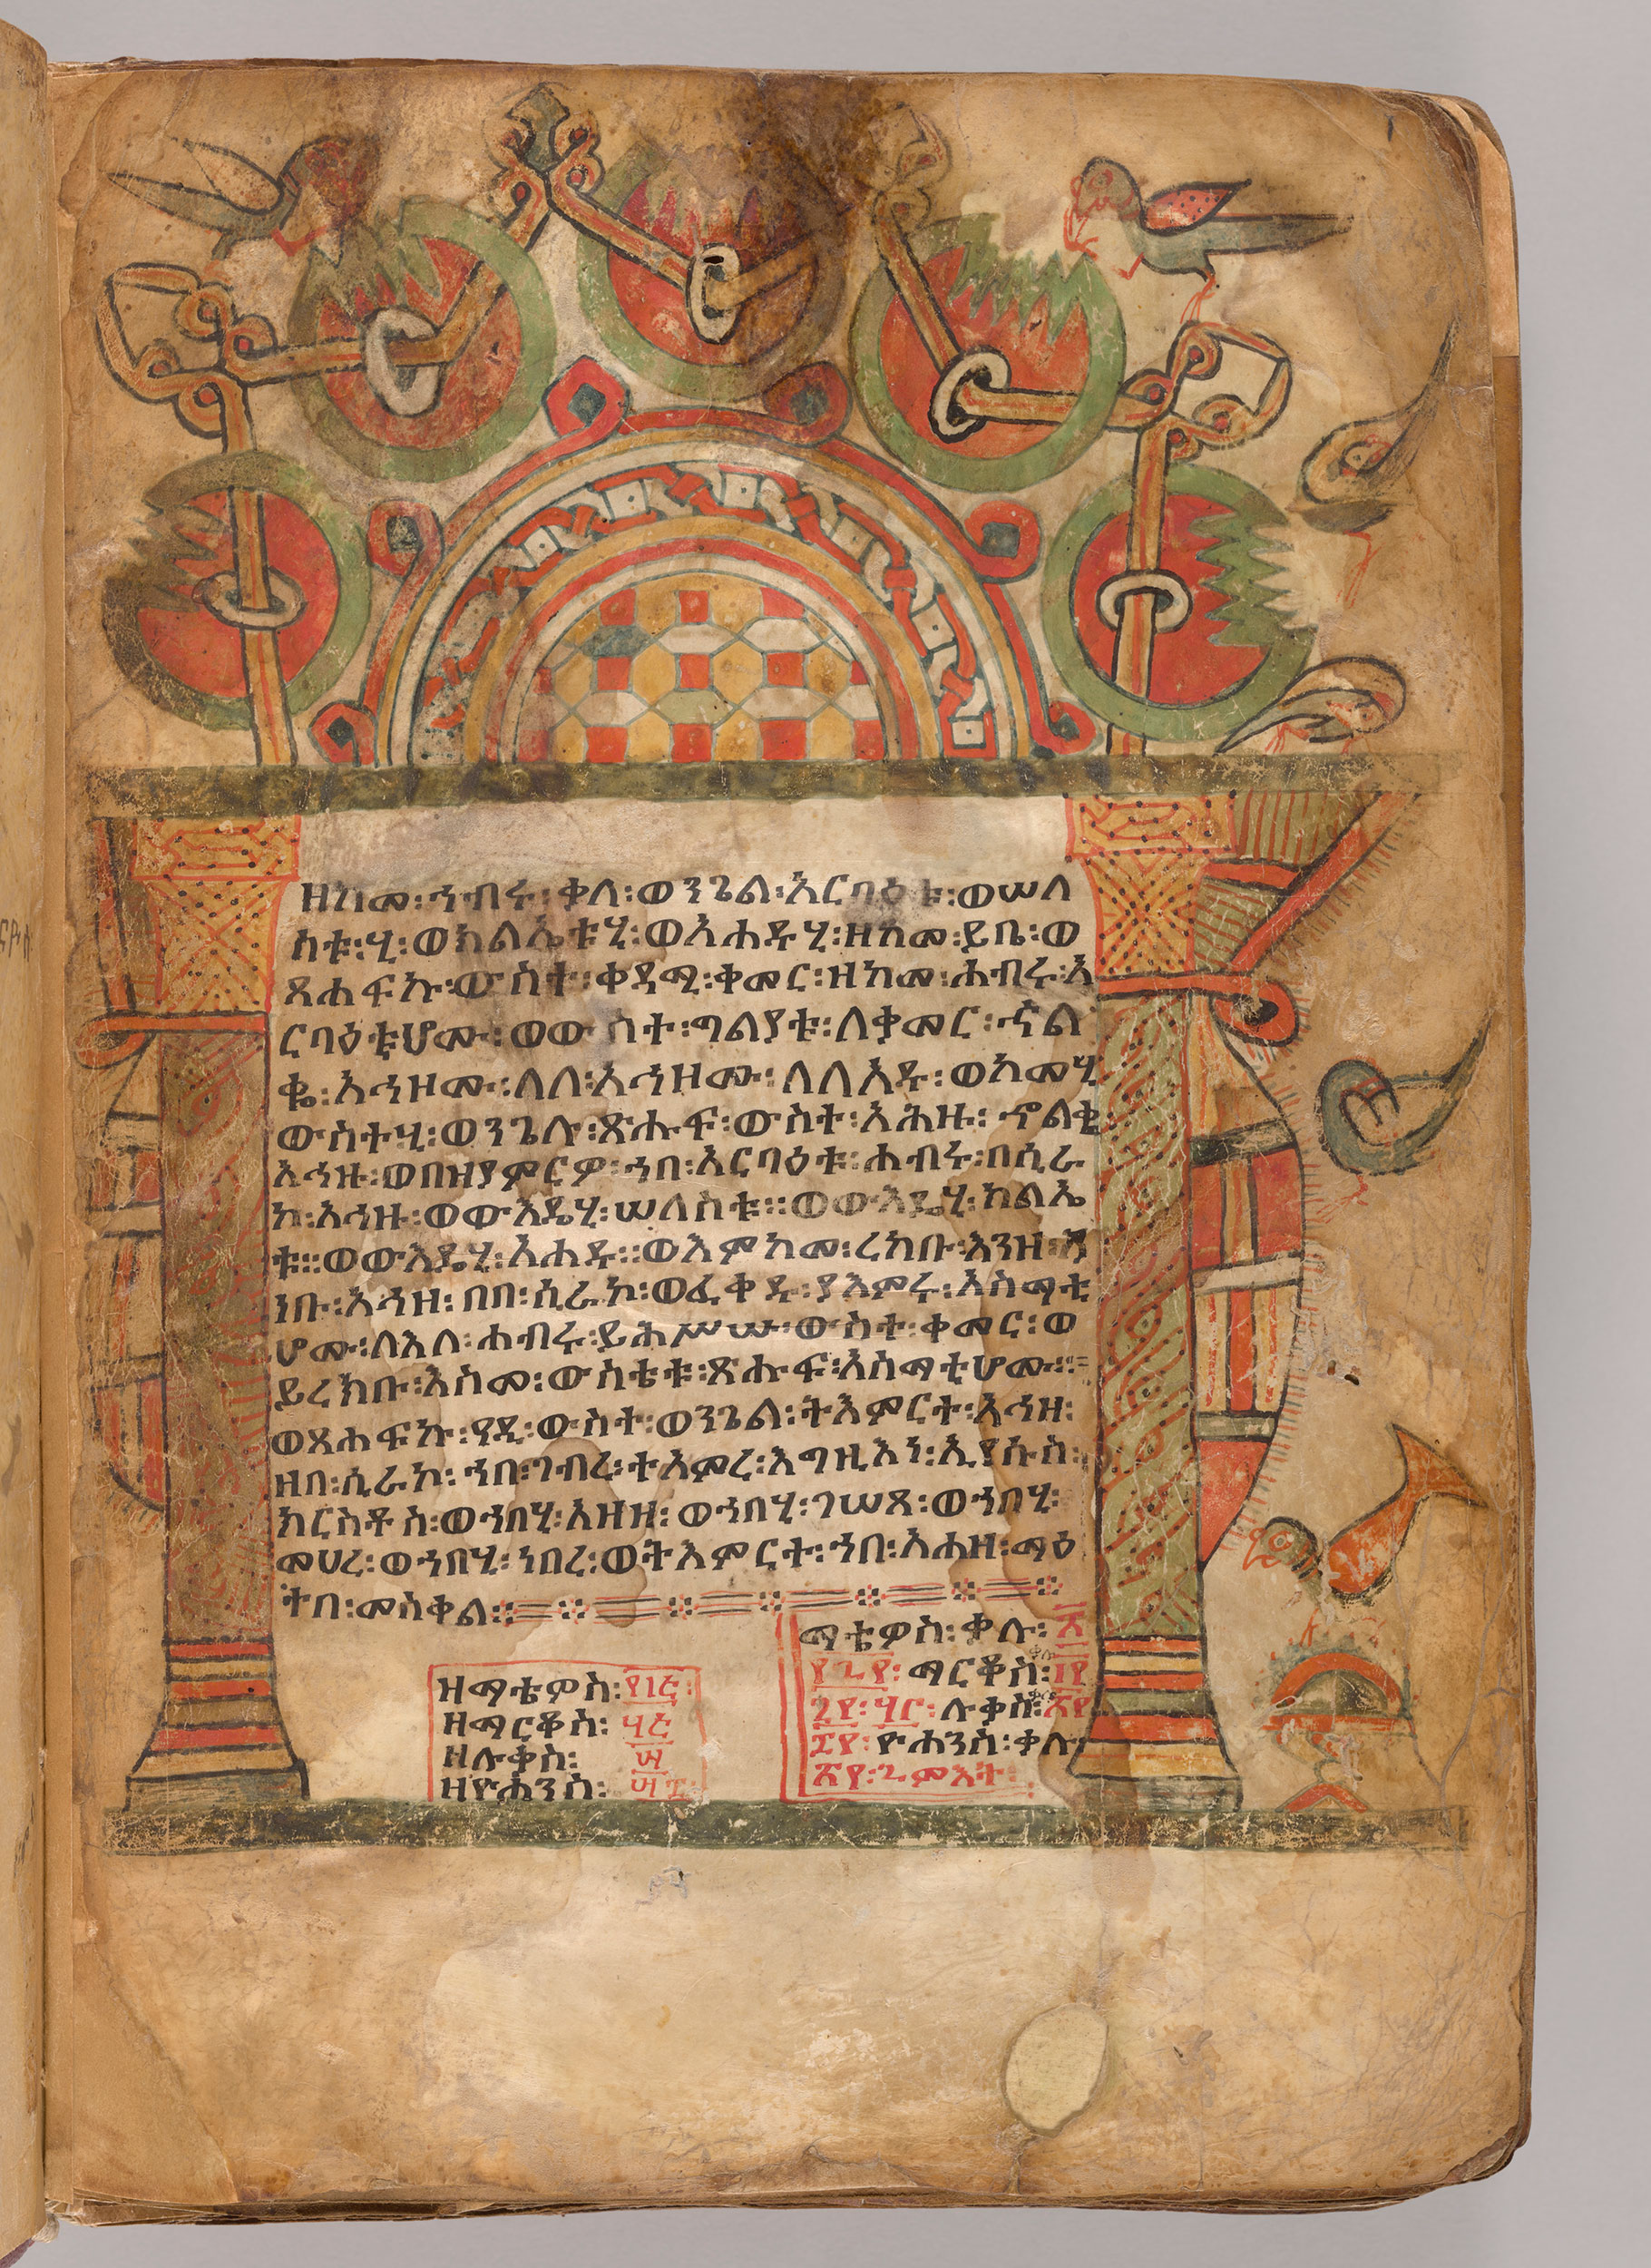 ዘከመ፡ኀብሩ፡ቀለ፡ወንጌል፡አርባዕቱ፡ወሠለ
ስቱ፡ሂ፡ወክልኤቱሂ፡ወአሐዱሂ፡ዘከመ፡ይቤ፡ወ
ጸሐፍኩ፡ውስተ፡ቀዳሚ፡ቀመር፡ዘከመ፡ሐብሩ፡አ
ርባዕቲሆሙ፡ወውስተ፡ግልየቱ፡ለቃመር፡ኍል
ቈ፡አኅዞሙ፡ለለ፡አኅዘሙ፡ለለአዱ፡ወከመሂ
ውስተሂ፡ወንጌሉ፡ጽሑፍ፡ውስተ፡አሕዙ፡ኆልቂ
አኅዙ፡ወበዝያምርዎ፡ኀበ፡አርባዕቱ፡ሐብሩ፡በሲራ
ኮ፡አኅዙ፡ወውእዴሂ፡ሠለስቱ፡፡ወውእዴሂ፡ክልኤ
ቱ፡፡ወውእዴሂ፡አሐዱ፡፡ወእምከመ፡ረከቡ፡እንዘ፡
ንቡ፡አኅዘ፡በበ፡ሲራኮ፡ወፈቀዱ፡ያእምሩ፡አስማቲ
ሆሙ፡ለእለ፡ሐብሩ፡ይሕሥሡ፡ውስተ፡ቀመር፡ወ
ይረክቡ፡እስመ፡ውስቴቱ፡ጽሑፍ፡አስማቲሆሙ፡፡
ወጸሐፍኩ፡ዓዲ፡ውስተ፡ወንጌል፡ትእምርተ፡አኅዘ፡
ዘበ፡ሲራኮ፡ኀበ፡ገብረ፡ተአምረ፡እግዚእነ፡ኢየሱስ፡
ክርስቶስ፡ወኀበሂ፡አዘዘ፡ወኀበሂ፡ገሠጸ፡ወኀበሂ፡
መሀረ፡ወኀበሂ፡ነበረ፡ወትእምርተ፡ኀበ፡አሐዘ፡ማዕ
ተበ፡መስቀል፡፡
ዘማቴዎስ፡
ዘማርቆስ፡
ዘሉቃስ፡
ዘዮሐንስ፡
ማቴዎስ፡ቃሉ፡
ማርቆስ፡
ሉቃስ፡
ዮሐንስ፡ቀሉ
፳፻፡፯ምእት